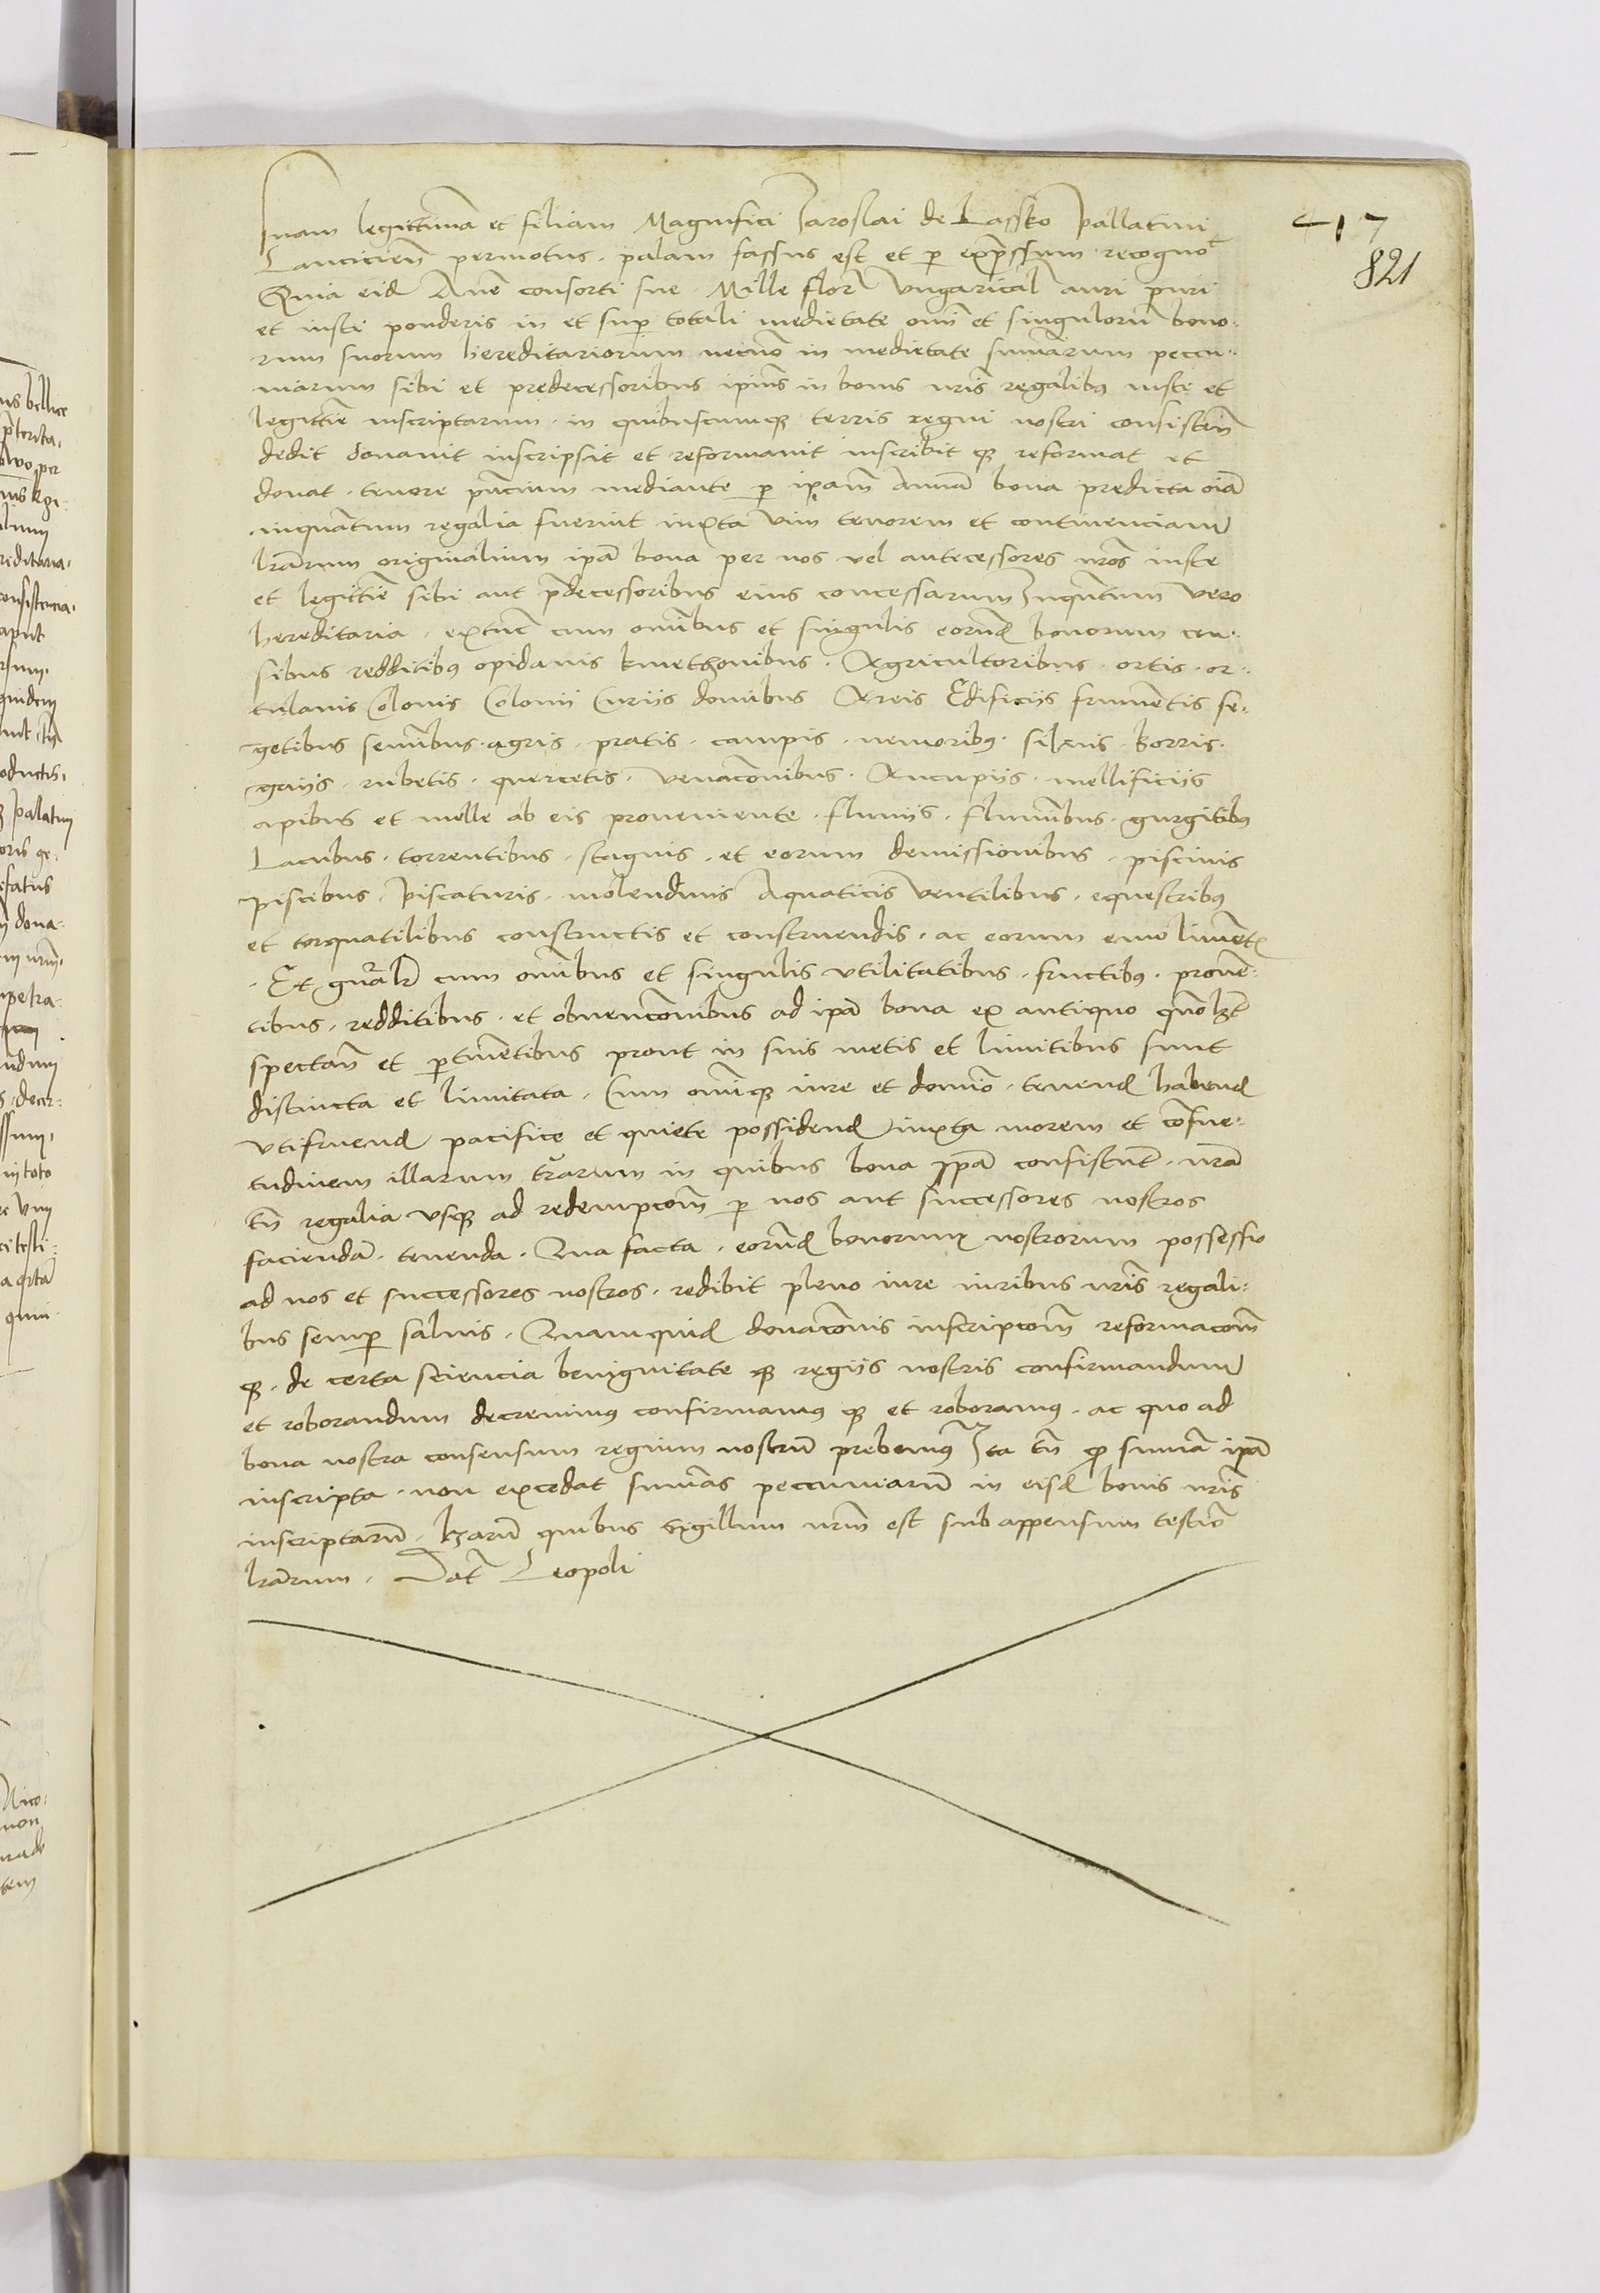 suam legittimā et filiam Magnifici Jaroslai de Lassko pallatini
417
Lanciciēn permotus . palam fassus est et p̱ exp̄ssum recognoᵗ
821
Quia eid̄ Anne consorti sue . Mille florꝭ Vngaricaƚ auri puri
et iusti ponderis in et suꝑ totali medietate om̄i et singuloꝝ bono-
rum suorum hereditariorum necnō in medietate summarum peccu-
niarum sibi et predecessoribus ipīus in bonis nr̄is regalibꝯ iuste et
legittīe inscriptarum . in quibuscumqꝫ terris regni nostri consisteñ
dedit donauit inscripsit et reformauit inscribit qꝫ reformat et
donat . tenore pñcium mediante p̱ ip̄am Annā bona predicta oīa
inquātum regalia fuerint iuxta vim tenorem et continenciam
lr̄arum originalium ip̄a bona per nos vel antecessores nr̄os iuste
et legittīe sibi aut p̄decessoribus eius concessarum Inquātum vero
hereditaria . extūc cum om̄ibus et singulis eorūd̄ bonorum cen-
sibus redditibꝯ opidanis kmethonibus . Agricultoribus . ortis . or-
tulanis Colonis Colonii Curiis domibus Areis Edificiis frumētis se-
getibus semībus . agris . pratis . campis . nemoribꝯ . siluis . borris .
gaiis . rubetis . quercetis . venacōnibus . Aucupiis . mellificiis
apibus et melle ab eis proueniente . fluuiis . flumībus . gurgitibꝯ
Lacubus . torrentibus . stagnis . et eorum demissionibus . piscinis
piscibus . piscaturis . molendinis Aquaticis ventilibus . equestribꝯ
et torquatilibus constructis et construendis . ac eorum emolimētꝭ
. Et gn̄alr̄ cum om̄ibus et singulis vtilitatibus . fructibꝯ . prouē-
tibus . redditibus . et obuencōnibus ad ip̄a bona ex antiquo quōlꝫt
spectañ et p̱tinētibus prout in suis metis et limitibus sunt
distincta et limitata . Cum om̄iqꝫ iure et domīo . tenend̄ habend̄
vtifruend̄ pacifice et quiete possidend̄ iuxta morem et cōsue-
tudinem illarum tr̄arum in quibus bona ip̄a consistūt . nr̄a
tñ regalia vsqꝫ ad redempcōm̄ p̱ nos aut successores nostros
faciendā . tenenda . Qua facta . eorūd̄ bonorum nostrorum possessio
ad nos et successores nostros . redibit pleno iure iuribus nr̄is regali-
bus sempꝑ saluis . Quamquid̄ donacōnis inscripcōm̄ reformacōm̄
qꝫ . de certa sciencia benignitate qꝫ regiis nostris confirmandum
et roborandum decreuimꝯ confirmamꝯ qꝫ et roboramꝯ . ac quo ad
bona nostra consensum regium nostrū prebemꝯ Ita tñ qꝫ summa ip̄a
inscripta . non excedat summas peccuniarū in eisd̄ bonis nr̄is
inscriptarū . harū quibus sigillum nr̄m est subappensum testīo
lr̄arum . Dat̄ Leopoli